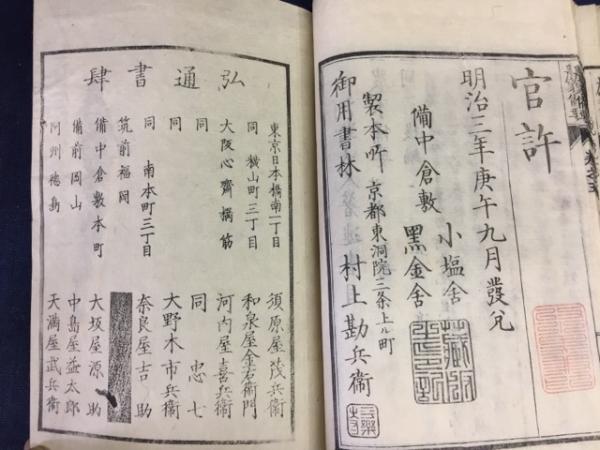 官許
明治三年庚午九月發兌
小塩舎
備中倉敷
黑金舍
製本所 京都東洞院三条上ル町
御用書林 村上勘兵衛
弘通書肆
東京日本橋南一丁目 須原屋茂兵衛
同 横山町三丁目 和泉屋金右衛門
大阪心齋橋筋 河内屋喜兵衛
同 同 忠七
同 大野木市兵衛
同 南本町三丁目 奈良屋吉助
筑前福岡
備中倉敷本町 大坂屋源助
備前岡山 中島屋益太郎
阿州徳島 天満屋武兵衛